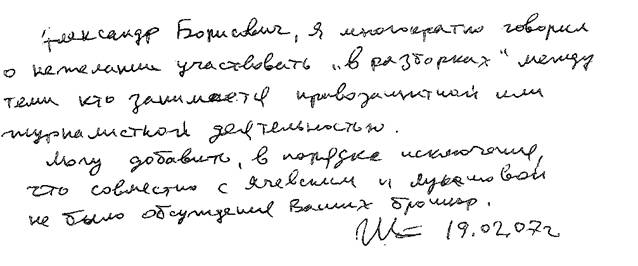 Александр Борисович, я многократно говорил
о нежелании участвовать „в разборках“ между
теми кто занимается правозащитной или
журналисткой деятельностью.
Могу добавить, в порядке исключения,
что совместно с Ячевским и Лукашовой
не было обсуждения Ваших брошюр.
19.02.07г